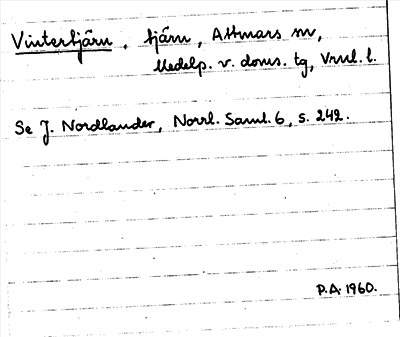 Vintertjärn, tjärn, Attmars sn,
Medelp. v. doms. tg, Vnl. l.
Se J. Nordlander, Norrl. Saml. 6, s. 242.
P.A. 1960.